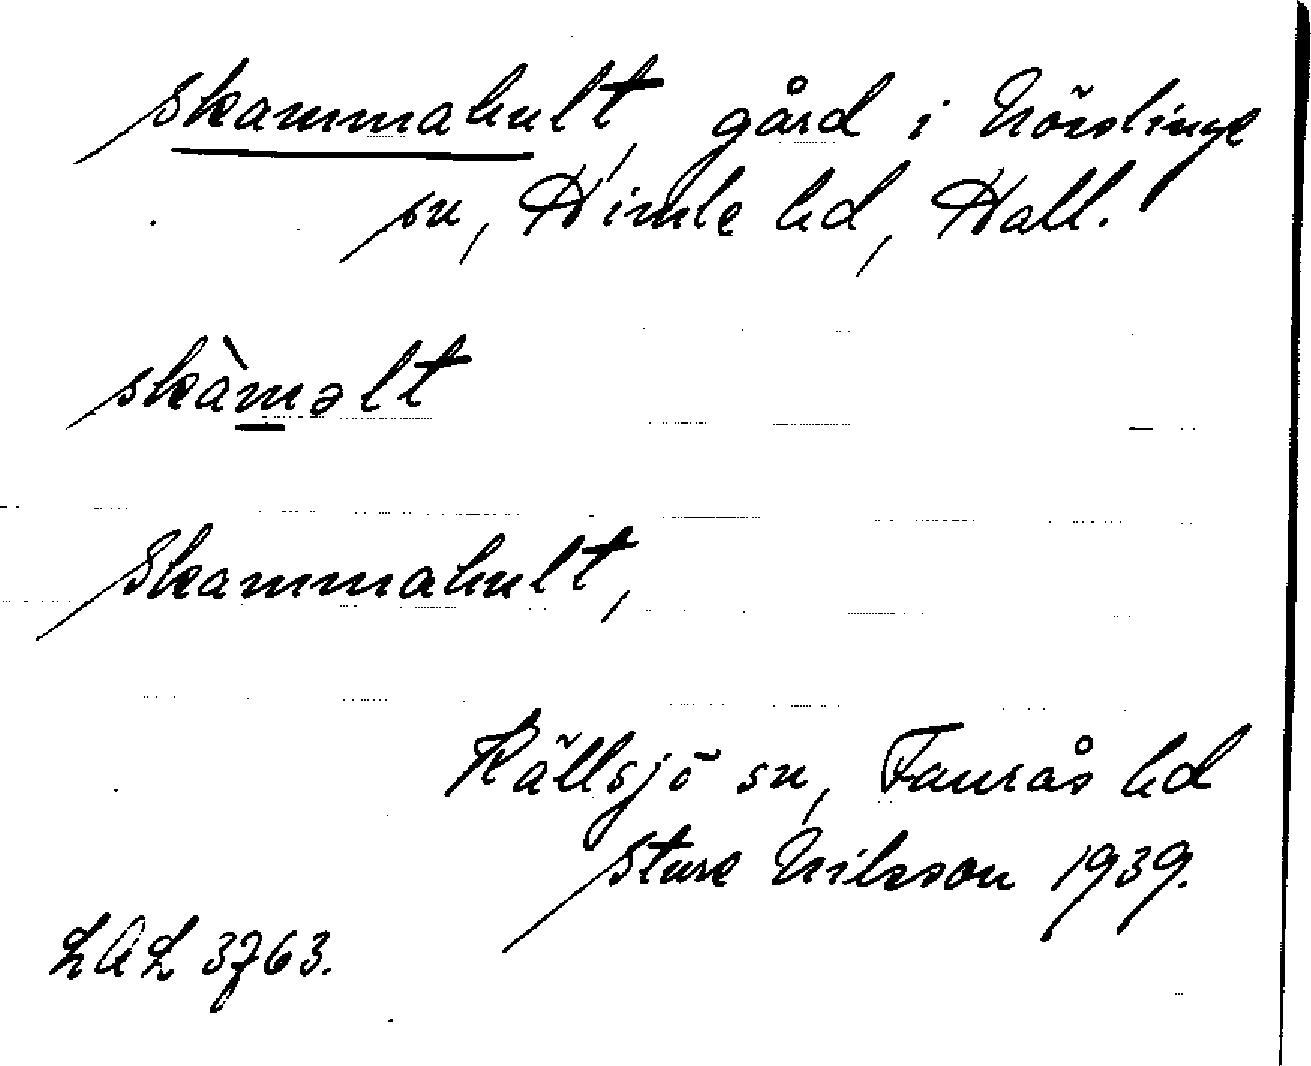 Skammahult, gård i Nösslinge
sn, Himle hd, Hall.
skàməlt
Skammahult,
Källsjö sn, Faurås hd
Sture Nilsson 1939.
LAL 3763.